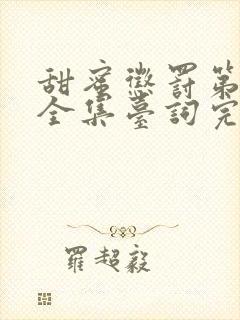 甜蜜懲罰第
全集臺詞完
羅超毅